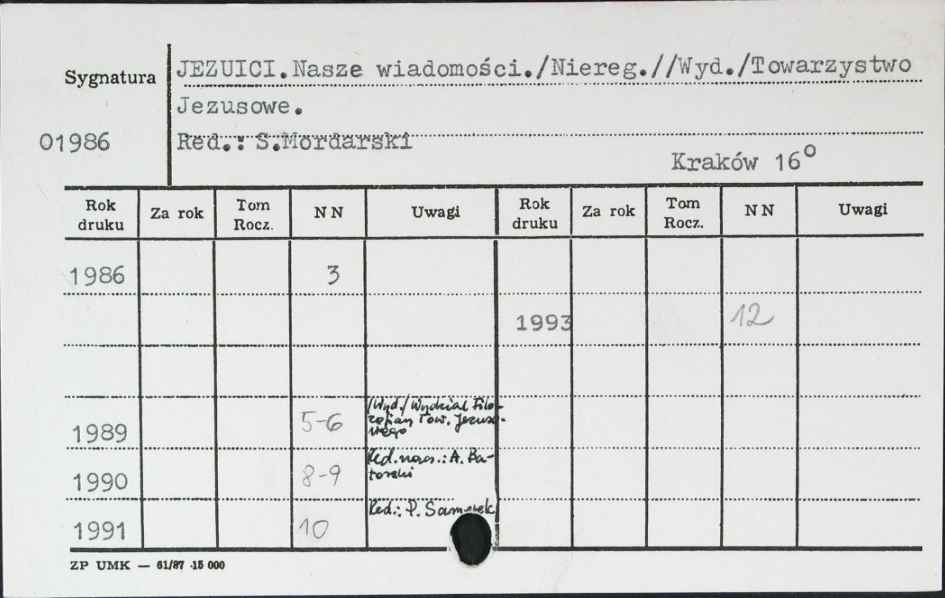 Sygnatura
JEZUICI.Nasze wiadomości./Niereg.//Wyd./Towarzystwo
Jezusowe.
01986
Red.: S.Mordarski
Kraków 16°
Rok druku Za rok Tom Rocz. NN Uwagi Rok druku Za rok Tom Rocz. NN Uwagi
1986 3
1993 12
/Wyd./ Wydział Filo-
zoficzny Tow. Jezuso-
wego
1989 5-6
Red. nacz.: A. Ba-
torski
1990 8-9
Red.: P. Samerek
1991 10
ZP UMK — 61/87 ·15 000